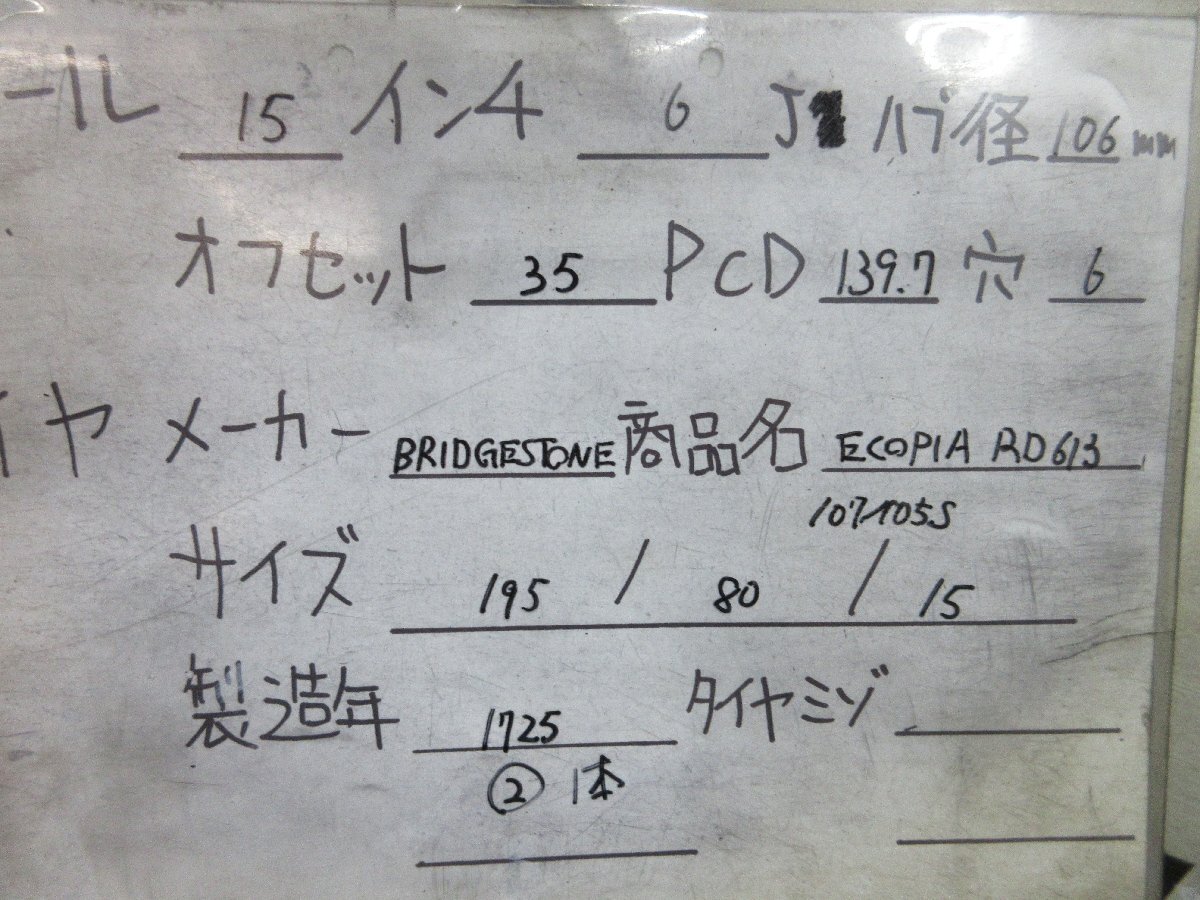 ール 15 インチ 6 J ハブ径 106 mm
オフセット 35 PCD 139.7 穴 6
イヤ メーカー BRIDGESTONE 商品名 ECOPIA RD613
107/105S
サイズ 195 / 80 / 15
製造年 1725 タイヤミゾ
② 1本